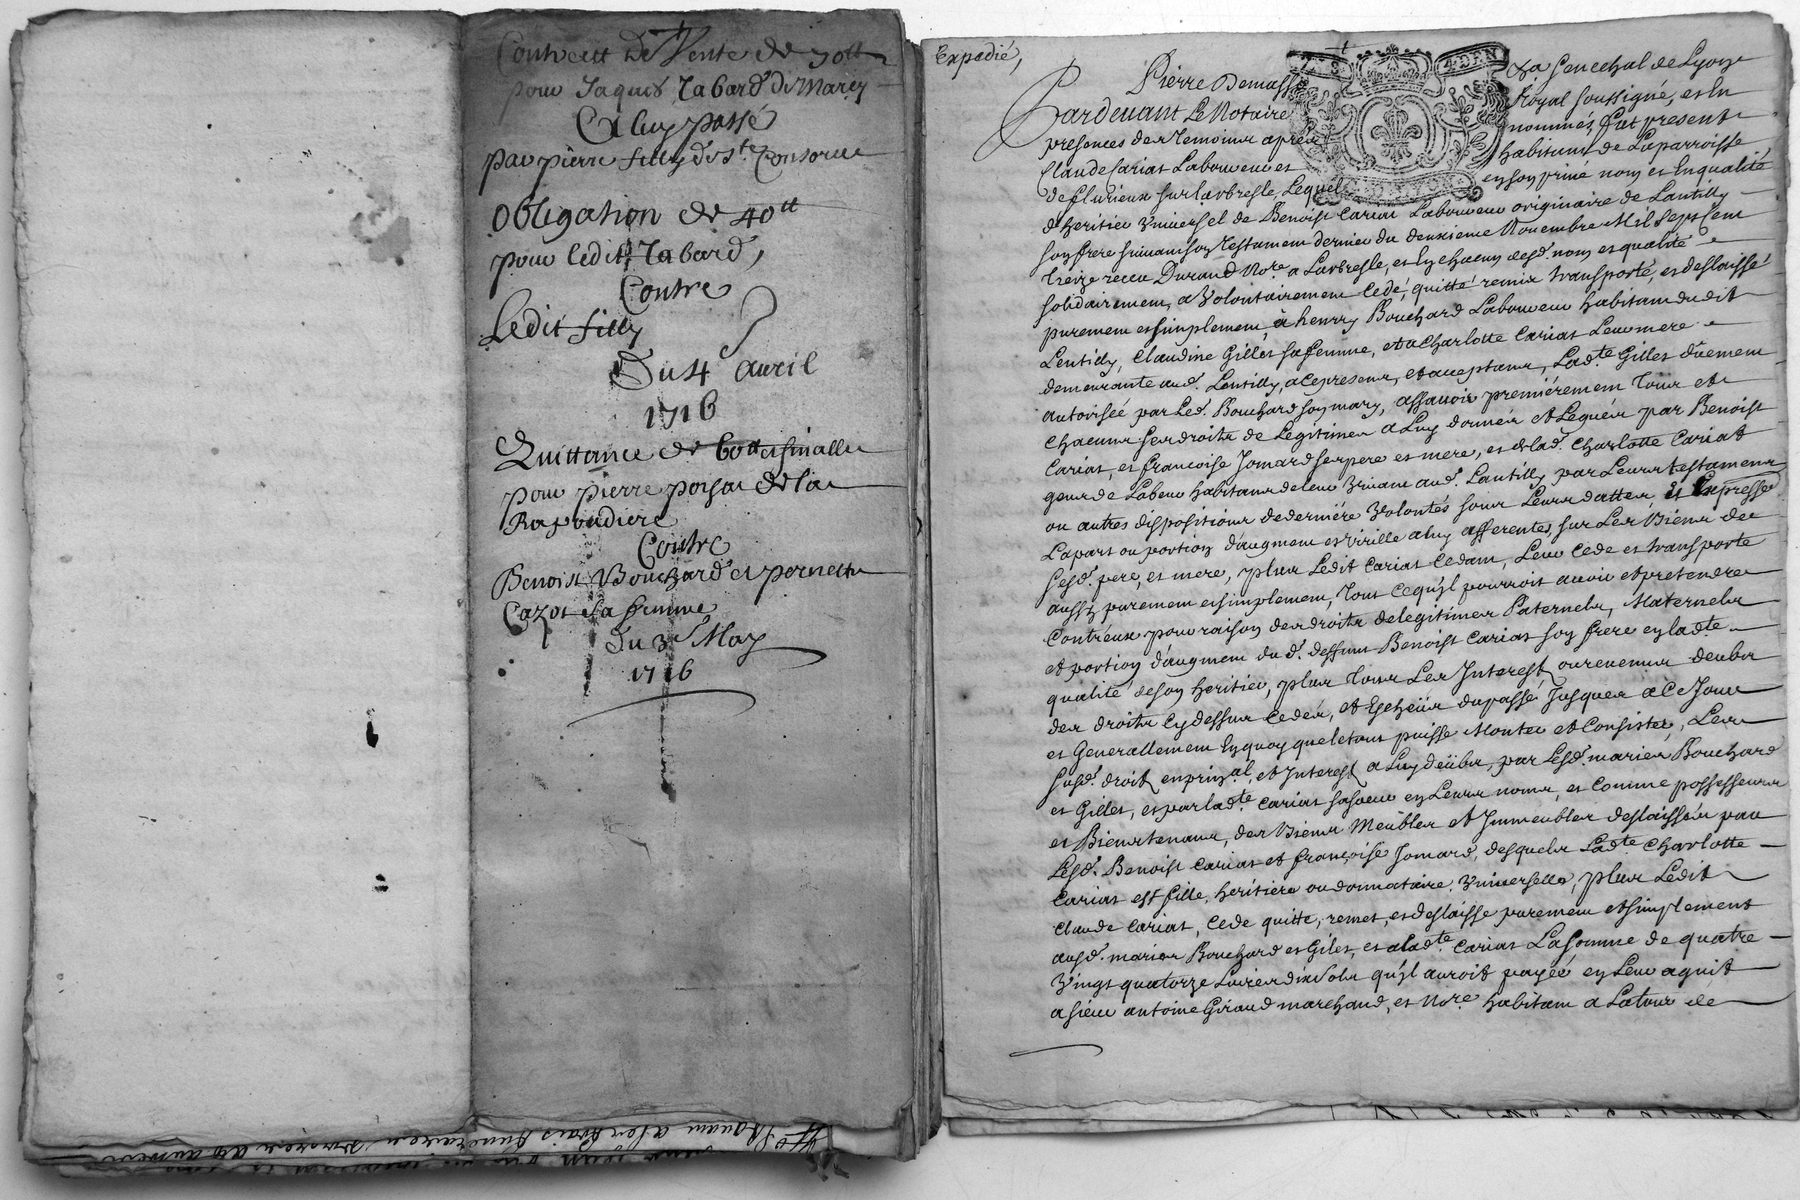 Contract de Vente de 70tt
pour Jaques Tabard de Marcy
A luy passé
par pierre filly de Ste Consorce
Obligation de 40tt
pour ledit Tabard,
Contre
Ledit filly
Du 4e avril
1716
Quittance de 60tt et finalle
pour pierre
Contre
Benoist Bouchard et pernette
Cazot sa femme
du 3e May
1716
Expedié,
Pierre Demasso La Senechal de Lyon
Pardevant Le Notaire Royal soussigné, et En
presences des temoins apres nommés, fut present
Claude Cariat Laboureur et habitant de La parroisse
de fleurieux sur Larbresle, Lequel en son privé nom et En qualité
d'heritier Universel de Benoist Cariat Laboureur originaire de Lantilly
son frere suivant son Testament dernier du deuxieme Novembre Mil Sept Cent
Treize receu Durand Nore a Larbresle, et En chacun desd. nom et qualité
solidairement, a Volontairement Cedé, quitté remis transporté, et deslaissé
purement et simplement, à henry Bouchard Laboureur habitant dudit
Lentilly, Claudine Gilles sa femme, et a Charlotte Cariat Leur mere
demeurante aud. Lentilly, a Ce present, et acceptant, Lad.te Gilles düement
autorisée par Led. Bouchard son mary, assavoir premiérement Tous et
Chacuns ses droits de Legitimes a Luy donnés et Legués par Benoist
Cariat, et francoise Jomard ses pere et mere, et de lad. Charlotte Cariat
gens de Labeur habitans de leur Vivant aud. Lantilly par Leurs testament
ou autres dispositions de derniére Volontés sous Leurs dattes et Expresse
La part ou portion d'augment et Virille a luy afferentes, sur Les Biens de
sesd. pere, et mere, plus Ledit Cariat Cedant, Leur Cede et transporte
aussy purement et simplement, Tout Ce qu'jl pourroit avoir et pretendre
Contr'eux pour raison des droits de legitimes Paternels, Maternels
et portion d'augment du d. deffunt Benoist Cariat son frere en lad.te
qualité de son heritier, plus Tous Les Interest ou revenus deubs
des droits Cy dessus Cedés, et Escheüs du passé Jusques a Ce Jour
et Generallement En quoy que le tout puisse Monter et Consister, Les
susd. droit en prinal, et Interest a Luy deübs, par Lesd. mariés Bouchard
et Gilles, et par lad.te Cariat sa soeur en Leurs noms, et Comme possesseurs
et Bienstenans, des Biens Meubles et Immeubles deslaissés par
Lesd. Benoist Cariat et françoise Jomard, desquels Lad.te Charlotte
Cariat est fille, heritiere ou donnataire Universelle, plus Ledit
Claude Cariat, Cede quitte, remet, et deslaisse purement et simplement
ausd. mariés Bouchard et Giles, et a lad.te Cariat La somme de quatre
Vingt quatorze Livres dix Sols qu'jl auroit payée en Leur aquit
a sieur antoine Giraud marchand, et Nore habitant a Latour de